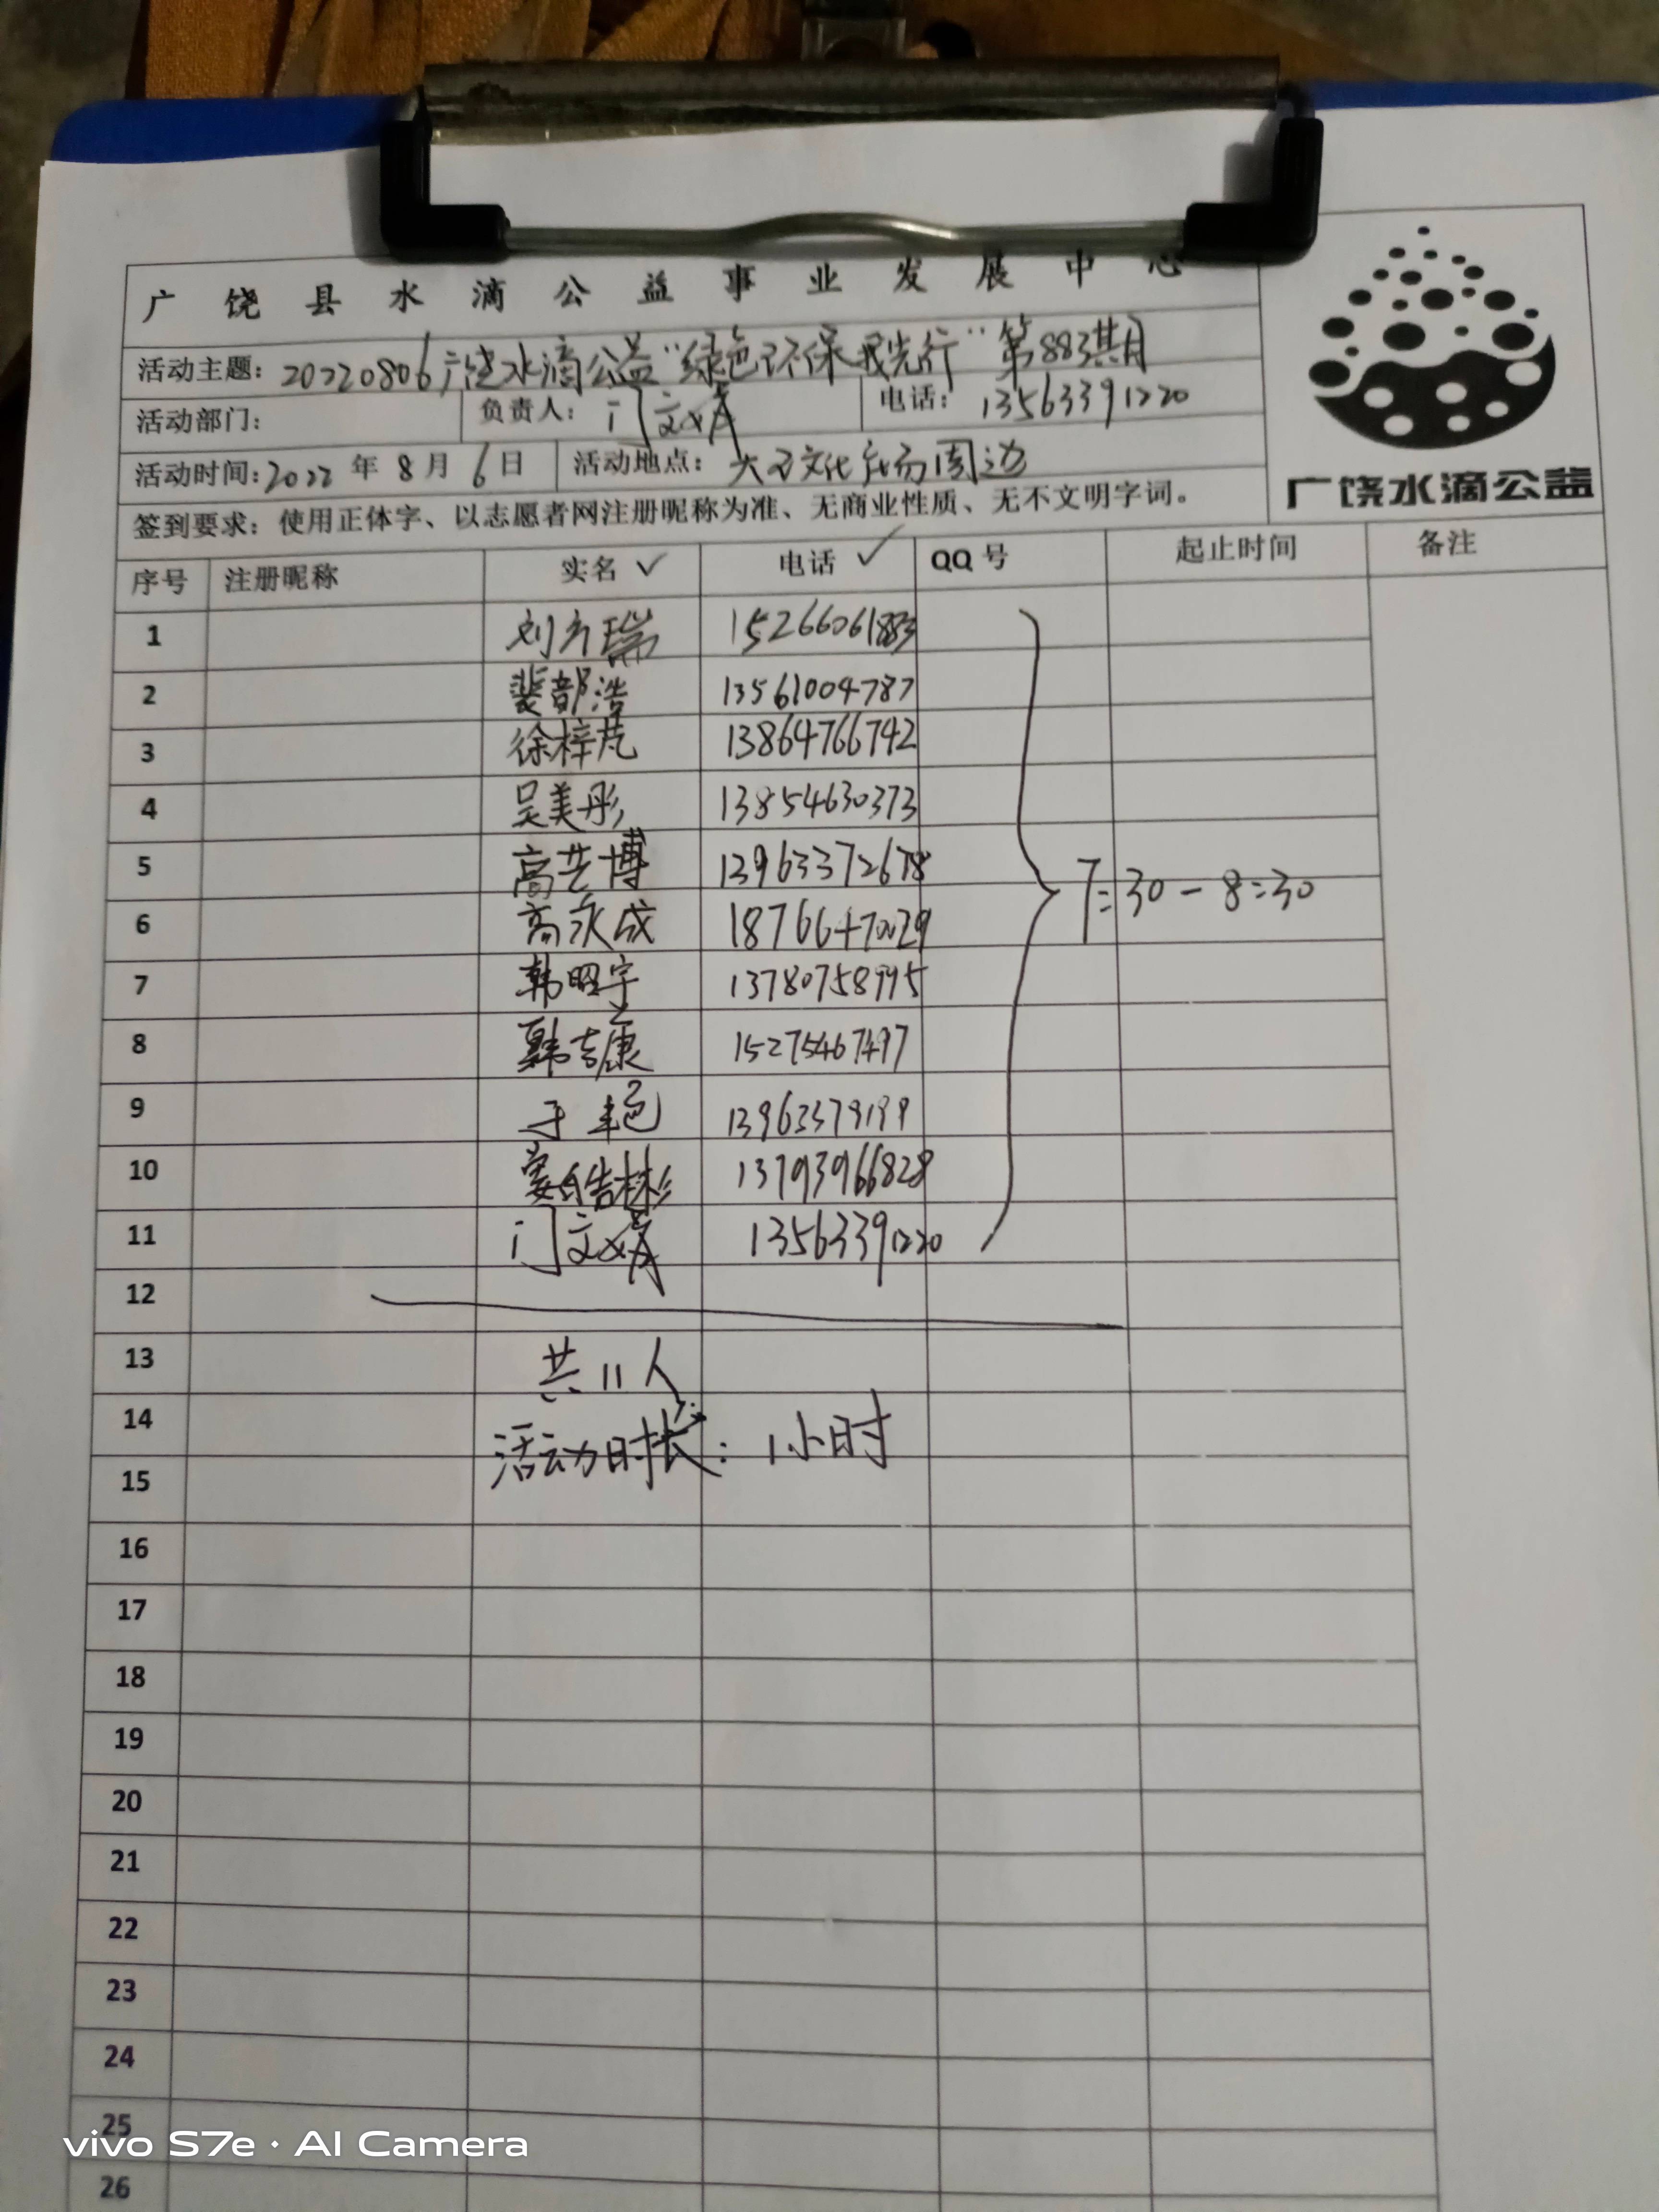 广饶县水滴公益事业发展中心
活动主题：20220806广饶水滴公益“绿色环保我先行”第883期
活动部门： 负责人：门文 电话：13563391220
活动时间：2022年8月6日 活动地点：大王文化广场周边
签到要求：使用正体字、以志愿者网注册昵称为准、无商业性质、无不文明字词。
广饶水滴公益
序号 注册昵称 实名✓ 电话✓ QQ号 起止时间 备注
1 刘瑞 15266061883
2 裴部浩 13561004787
3 徐梓芃 13864766742
4 吴美彤 13854630373
5 高艺博 13963372678
6 高永成 18766470029
7 韩昭宇 13780758995
8 韩吉康 15275467497
9 于艳 13963379199
10 皓彬 13793966828
11 门文 13563391220
7:30-8:30
12
13 共11人
14 活动时长：1小时
15
16
17
18
19
20
21
22
23
24
25
26
vivo S7e · AI Camera